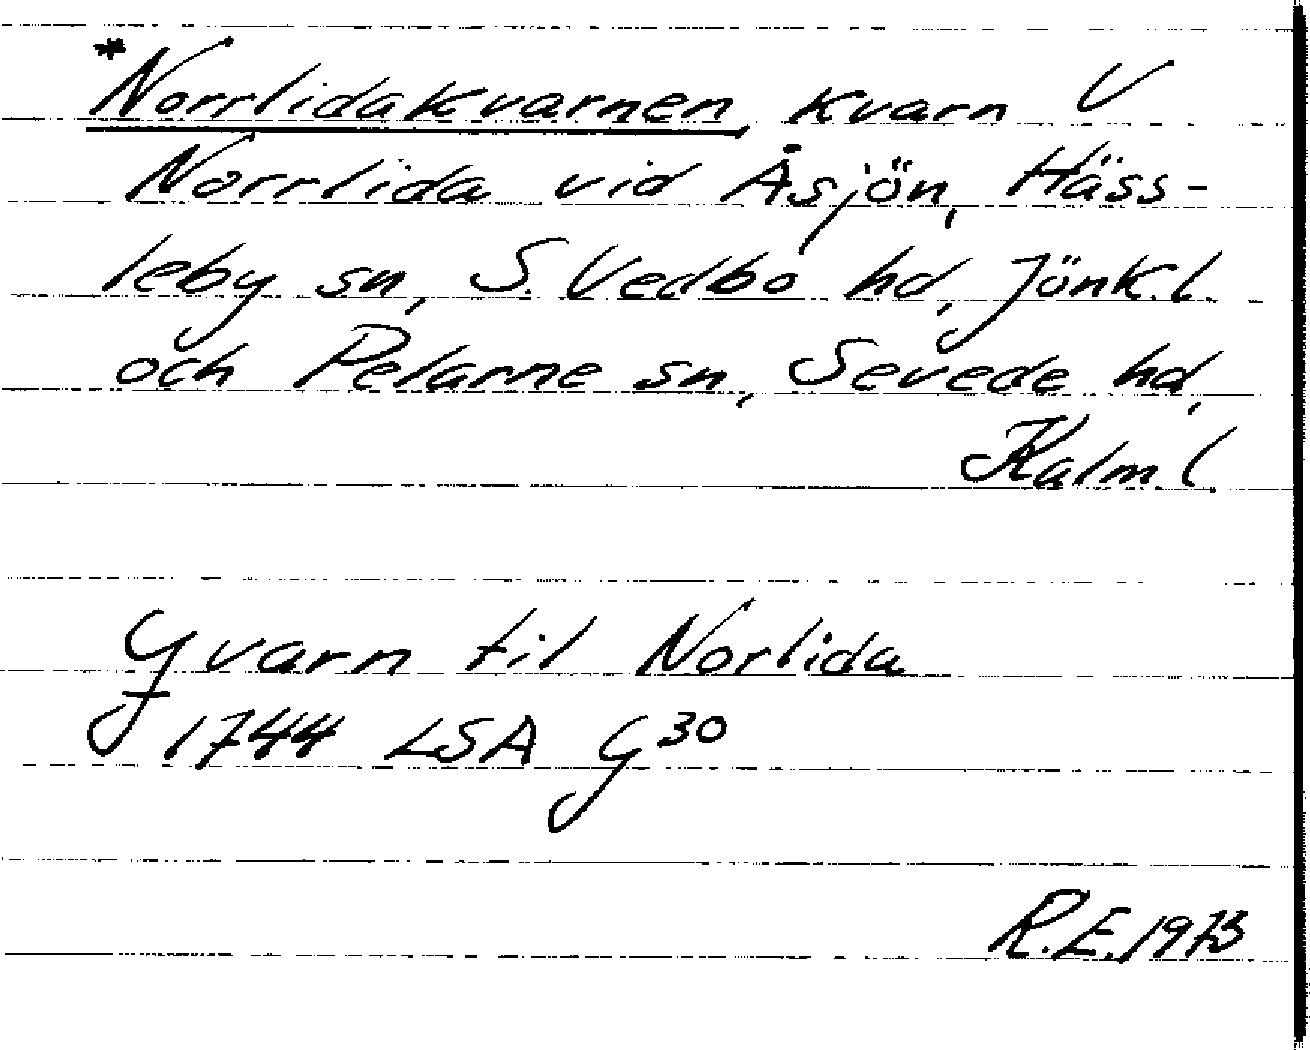 *Norrlidakvarnen, kvarn V
Norrlida vid Åsjön, Häss-
leby sn, S. Vedbo hd, Jönk.l.
och Pelarne sn, Sevede hd,
Kalm.l.
Qvarn til Norlida
1744 LSA G30
R.E. 1973